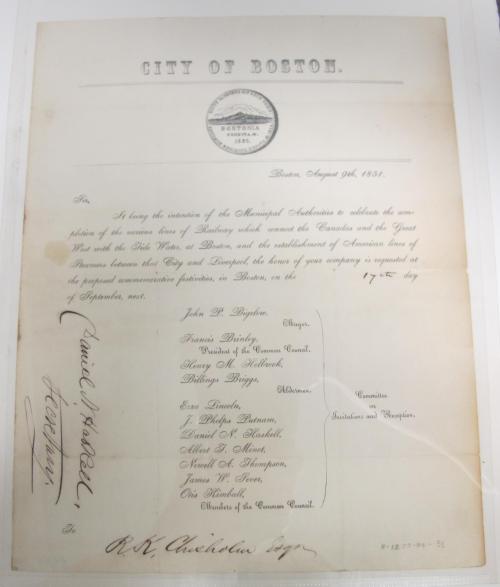 CITY OF BOSTON.
BOSTONIA
CONDITA. A.
1630.
Boston, August 9th, 1851.
Sir,
It being the intention of the Municipal Authorities to celebrate the com-
pletion of the various lines of Railway which connect the Canadas and the Great
West with the Tide Water, at Boston, and the establishment of American lines of
Steamers between that City and Liverpool, the honor of your company is requested at
the proposed commemorative festivities, in Boston, on the 17th day
of September, next.
John P. Bigelow,
Mayor.
Francis Brinley,
President of the Common Council.
Henry M. Holbrook,
Billings Briggs,
Aldermen.
Ezra Lincoln,
J. Phelps Putnam,
Daniel N. Haskell,
Albert T. Minot,
Newell A. Thompson,
James W. Sever,
Otis Kimball,
Members of the Common Council.
Committee
on
Invitations and Reception.
Daniel N Haskell,
Secretary.
To
R. K. Chisholm Esqr